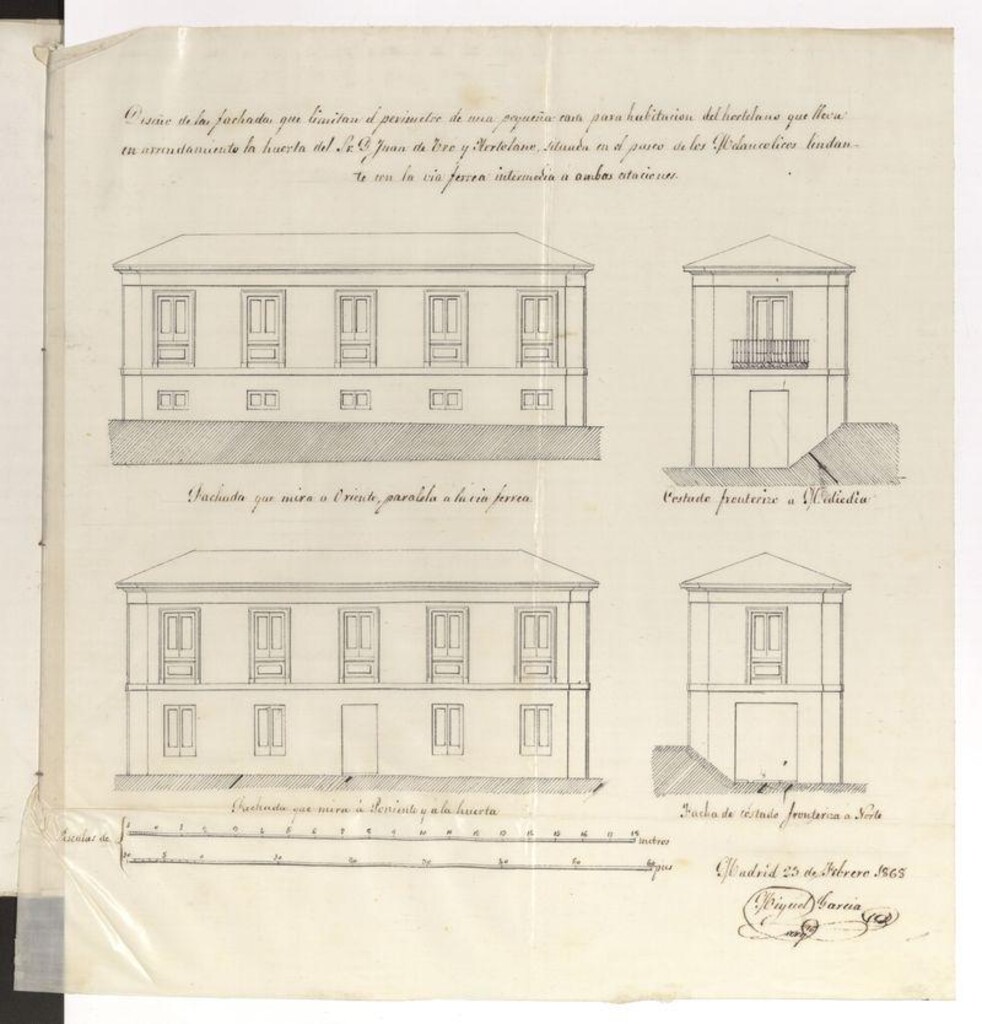 Diseño de las fachadas que limitan el perimetro de una pequeña casa para habitacion del hortelano que lleva
en arrendamiento la huerta del Sr. D. Juan de Oro y Hortelano, situada en el paseo de los Melancolicos lindan-
te con la via ferrea intermedia a ambas estaciones.
Fachada que mira a Oriente, paralela a la via ferrea.
Costado fronterizo a Mediodia
Fachada que mira á Poniente y a la huerta
Facha de costado fronteriza a Norte
Escalas de
metros
pies
Madrid 23 de Febrero 1868
Miguel Garcia